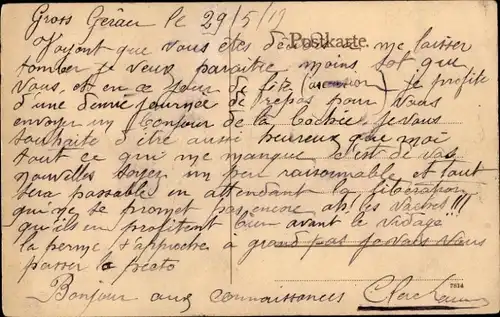 Gross Gérau le 29/5/19
Postkarte
Voyant que vous êtes décidés a me laisser
tomber je veux paraitre moins sot que
vous et en ce jour de fête (ascension) je profite
d'une demie journée de repos pour vous
envoyer un bonjour de la Bochie je vous
souhaite d'être aussi heureux que moi
tout ce qui me manque c'est de vos
nouvelles soyez un peu raisonnable et tout
sera passable en attendant la libération
qui ne se promet pas encore ah! les vaches!!!
qu'ils en profitent bien avant le vidage!!
la perme s'approche a grand pas je vais vous
passer la
Bonjour aux connaissances
7814